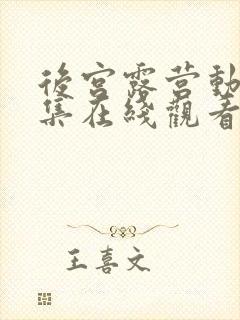 後宮露营動
集在綫觀看
王喜文